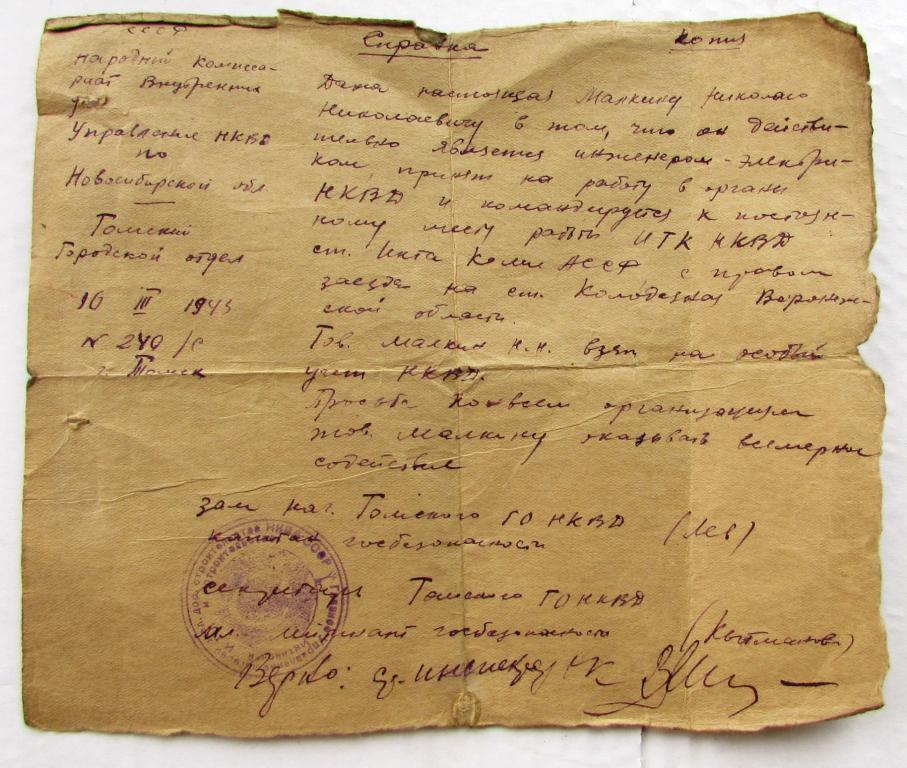 СССР
Народный комисса-
риат Внутренних
дел
Управление НКВД
по
Новосибирской обл.
Томский
Городской отдел
16 III 1943
N 240/с
г. Томск
Справка
копия
Дана настоящая Малкину Николаю
Николаевичу в том, что он действи-
тельно является инженером-электри-
ком принят на работу в органы
НКВД и командируется к постоян-
ному месту работы ИТК НКВД
ст. Инта Коми АССР с правом
заезда на ст. Колодезная Воронеж-
ской области.
Тов. Малкин Н.Н. взят на особый
учет НКВД.
Просьба ко всем организациям
тов. Малкину оказывать всемерное
содействие
зам нач. Томского ГО НКВД
капитан госбезопасности (Лев)
секретарь Томского ГО НКВД
мл. лейтенант госбезопасности (Кытманова)
Верно: ст. инспектор ОК
НКВД СССР